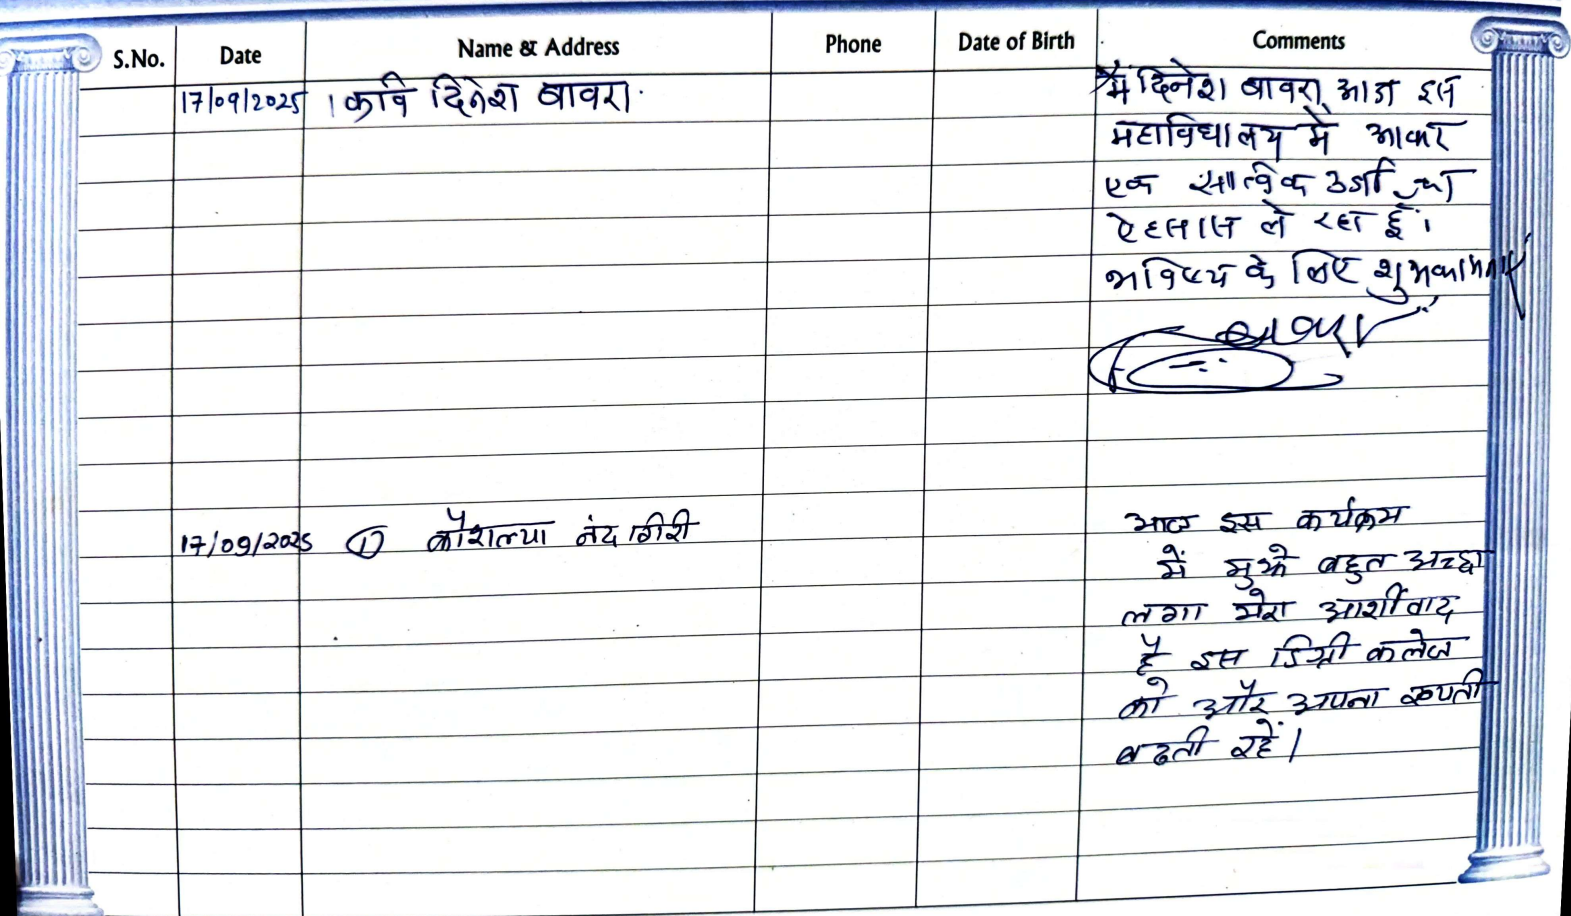 S.No. Date Name & Address Phone Date of Birth Comments
17/09/2025 । कवि दिनेश बावरा. मैं दिनेश बावरा, आज इस
महाविधालय में आकर
एक सात्विक उर्जा का
ऐहसास ले रहा हूँ।
भविष्य के लिए शुभकामनाएं
बावरा
17/09/2025 ① कौशल्या नंद गिरी आज इस कर्यक्रम
में मुझे बहुत अच्छा
लगा मेरा आर्शीवाद
है इस डिग्री कलेज
को और अपना ख्यती
बढती रहें।